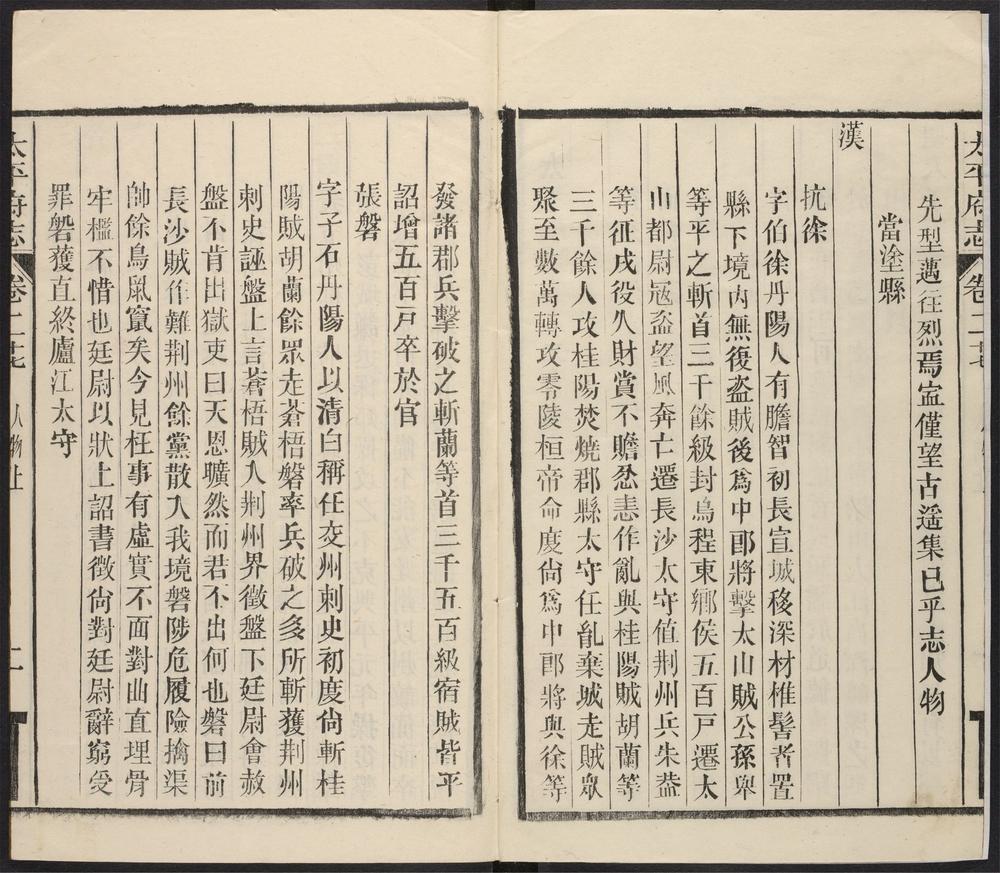 太平府志 卷二七
先型邁往烈焉寍僅望古遥集已乎志人物
當塗縣
漢
抗徐
字伯徐丹陽人有膽智初長宣城移深材椎髻者置
縣下境內無復盗賊後爲中郎將擊太山賊公孫舉
等平之斬首三千餘級封烏程東鄉侯五百戶遷太
山都尉寇盗望風奔亡遷長沙太守值荆州兵朱葢
等征戍役久財賞不贍忿恚作亂與桂陽賊胡蘭等
三千餘人攻桂陽焚燒郡縣太守任亂棄城走賊眾
聚至數萬轉攻零陵桓帝命度尙爲中郎將與徐等
發諸郡兵擊破之斬蘭等首三千五百級宿賊皆平
詔增五百戶卒於官
張磐
字子石丹陽人以清白稱任交州刺史初度尙斬桂
陽賊胡蘭餘眾走蒼梧磐率兵破之多所斬獲荆州
刺史誣盤上言蒼梧賊入荆州界徵盤下廷尉會赦
盤不肯出獄吏曰天恩曠然而君不出何也磐曰前
長沙賊作難荆州餘黨散入我境磐陟危履險擒渠
帥餘鳥鼠竄矣今見枉事有虛實不面對曲直埋骨
牢檻不惜也廷尉以狀上詔書徵尙對廷尉辭窮受
罪磐獲直終廬江太守
太平府志 卷二七 人物上 二